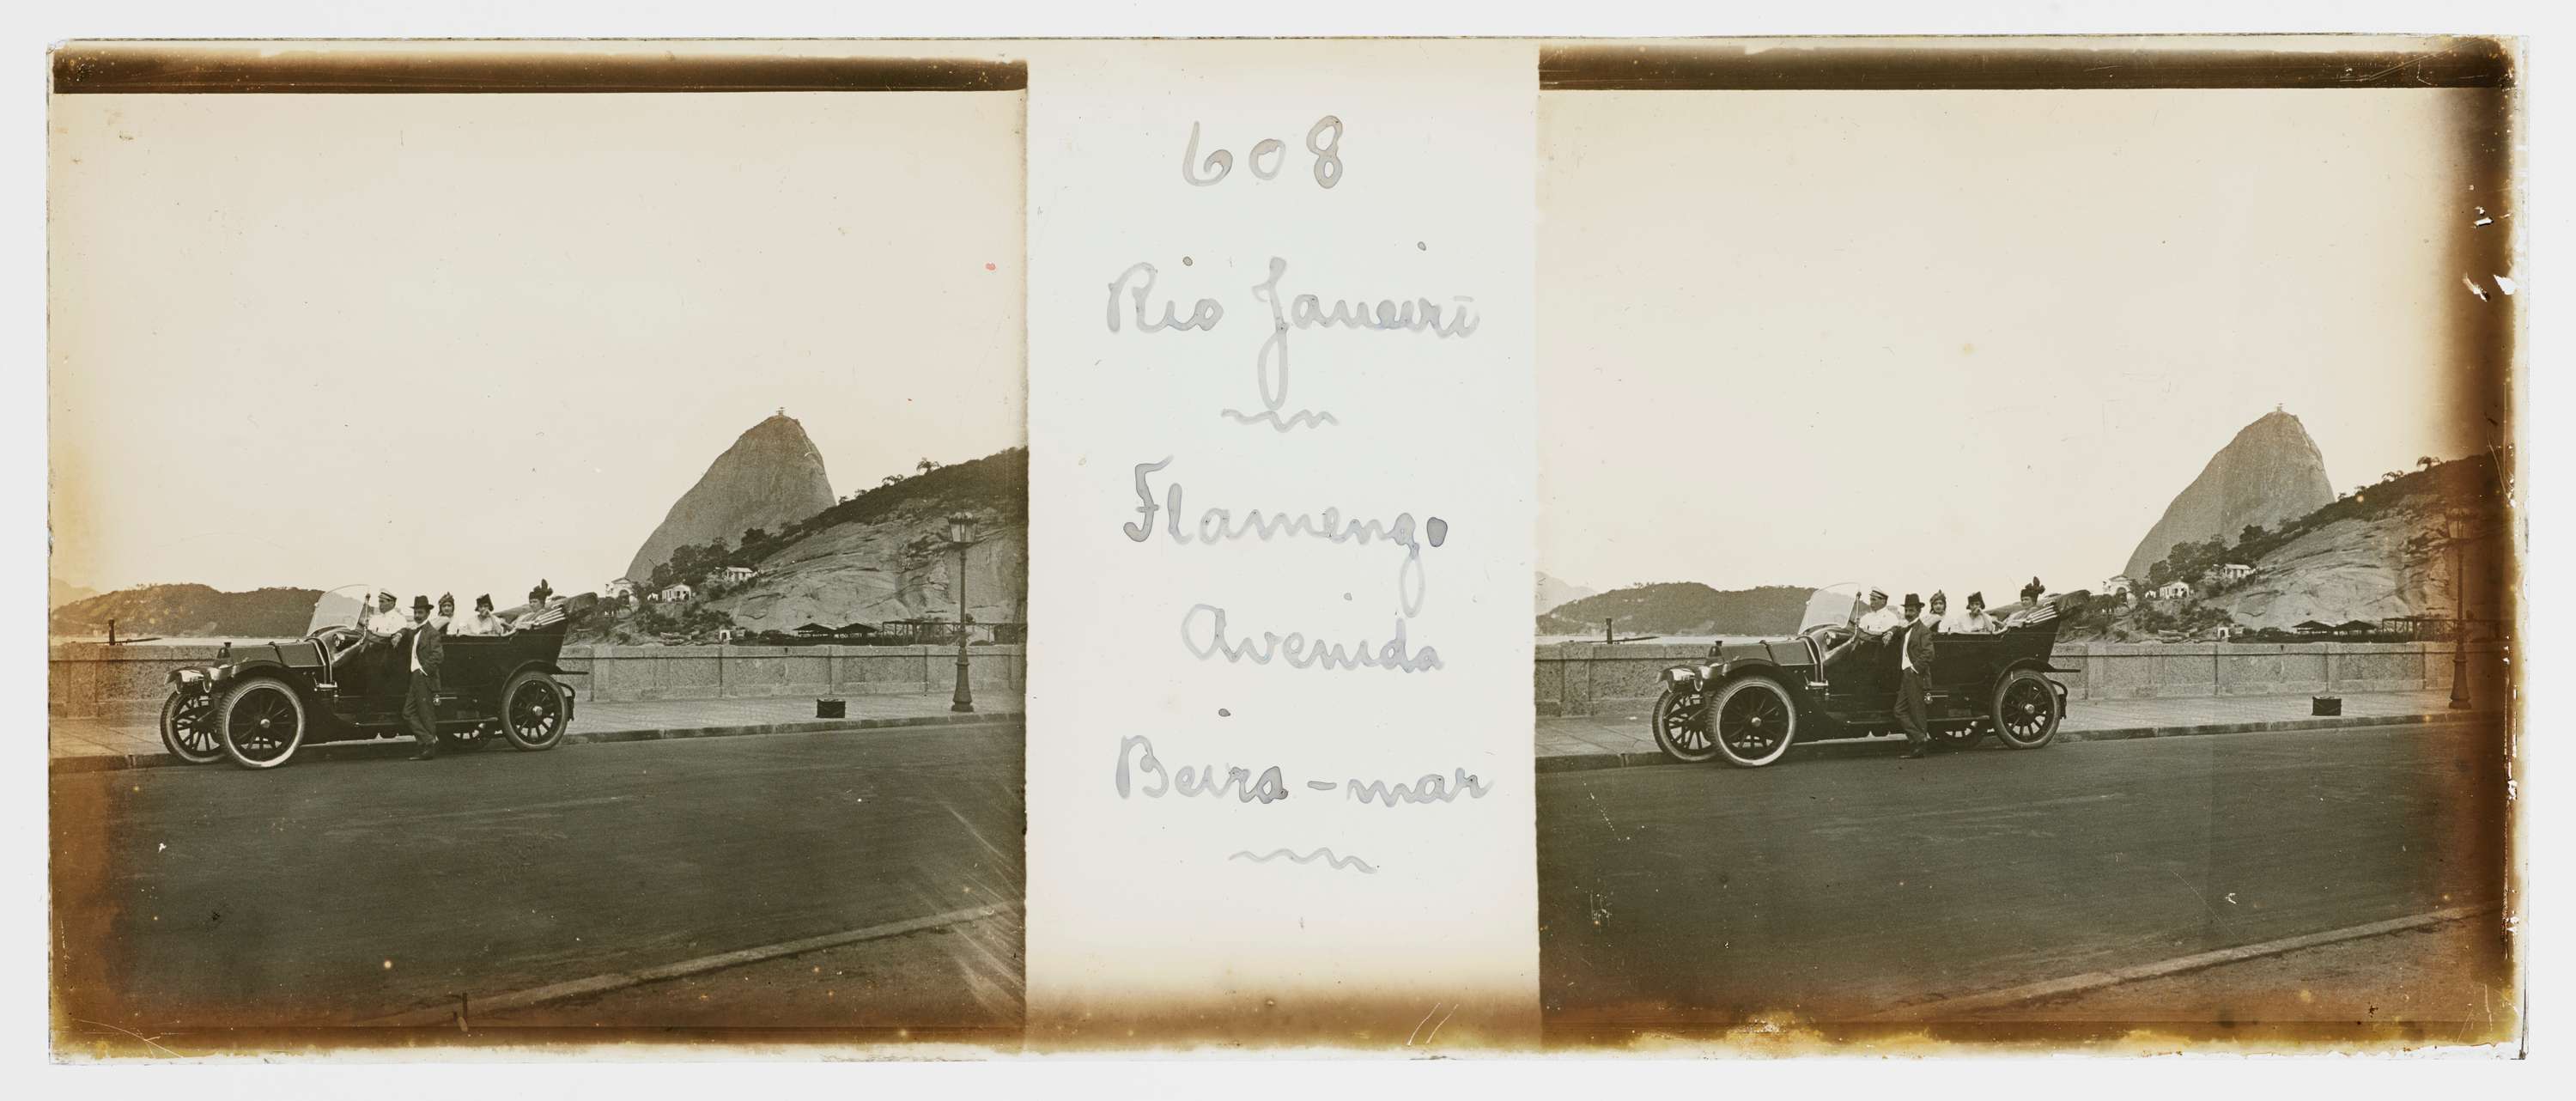 608
Rio Janeiro
Flamengo
Avenida
Beira-mar